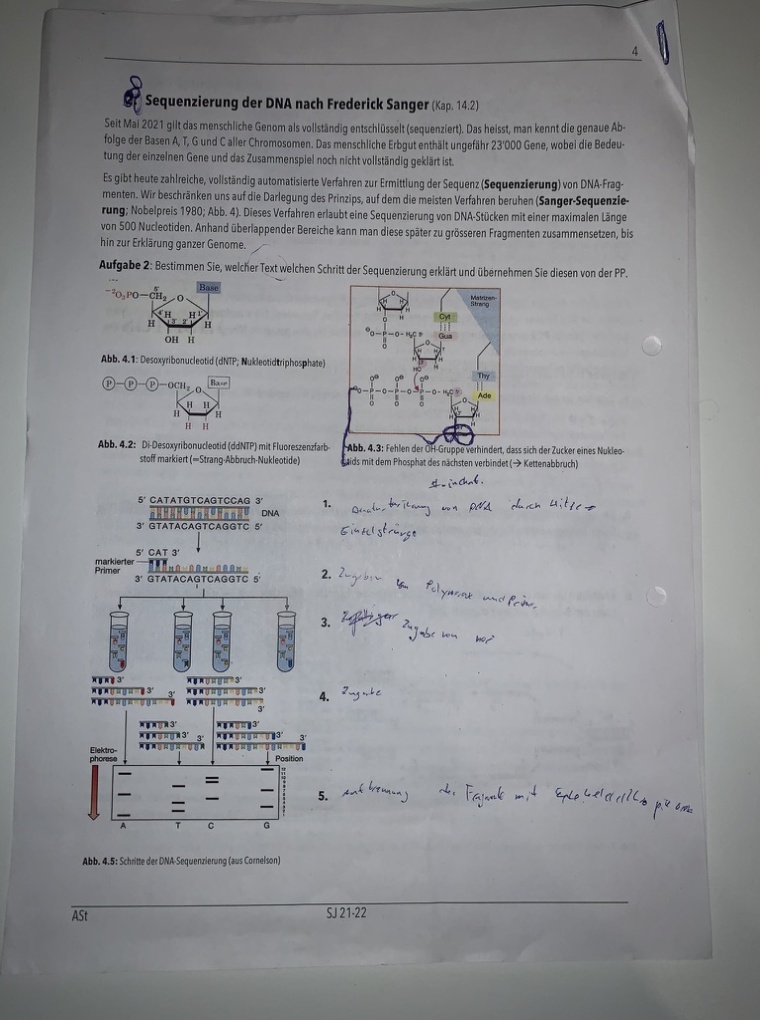 4
Sequenzierung der DNA nach Frederick Sanger (Kap. 14.2)
Seit Mai 2021 gilt das menschliche Genom als vollständig entschlüsselt (sequenziert). Das heisst, man kennt die genaue Ab-
folge der Basen A, T, G und C aller Chromosomen. Das menschliche Erbgut enthält ungefähr 23'000 Gene, wobei die Bedeu-
tung der einzelnen Gene und das Zusammenspiel noch nicht vollständig geklärt ist.
Es gibt heute zahlreiche, vollständig automatisierte Verfahren zur Ermittlung der Sequenz (Sequenzierung) von DNA-Frag-
menten. Wir beschränken uns auf die Darlegung des Prinzips, auf dem die meisten Verfahren beruhen (Sanger-Sequenzie-
rung; Nobelpreis 1980; Abb. 4). Dieses Verfahren erlaubt eine Sequenzierung von DNA-Stücken mit einer maximalen Länge
von 500 Nucleotiden. Anhand überlappender Bereiche kann man diese später zu grösseren Fragmenten zusammensetzen, bis
hin zur Erklärung ganzer Genome.
Aufgabe 2: Bestimmen Sie, welcher Text welchen Schritt der Sequenzierung erklärt und übernehmen Sie diesen von der PP.
Base
CH₂
OH H
Abb. 4.1: Desoxyribonucleotid (dNTP; Nukleotidtriphosphate)
P-P-P-OCH₂ Base
H H
Abb. 4.2: Di-Desoxyribonucleotid (ddNTP) mit Fluoreszenzfarb-
stoff markiert (=Strang-Abbruch-Nukleotide)
Matrizen-
Strang
Cyt
Gua
Thy
Ade
Abb. 4.3: Fehlen der OH-Gruppe verhindert, dass sich der Zucker eines Nukleo-
tids mit dem Phosphat des nächsten verbindet (→ Kettenabbruch)
5' CATATGTCAGTCCAG 3'
DNA
3' GTATACAGTCAGGTC 5'
5' CAT 3'
markierter
Primer
3' GTATACAGTCAGGTC 5'
1. von DNA durch Hitze →
Einzelstränge
2. Zugeben von Polymerase und Primer
3. Zugabe von
4. Zugabe
3'
3'
3'
3'
3'
3'
3'
3'
3'
3'
3'
3'
Elektro-
phorese
Position
A T C G
5. der Fragmente mit
Abb. 4.5: Schritte der DNA-Sequenzierung (aus Cornelson)
ASt
SJ 21-22